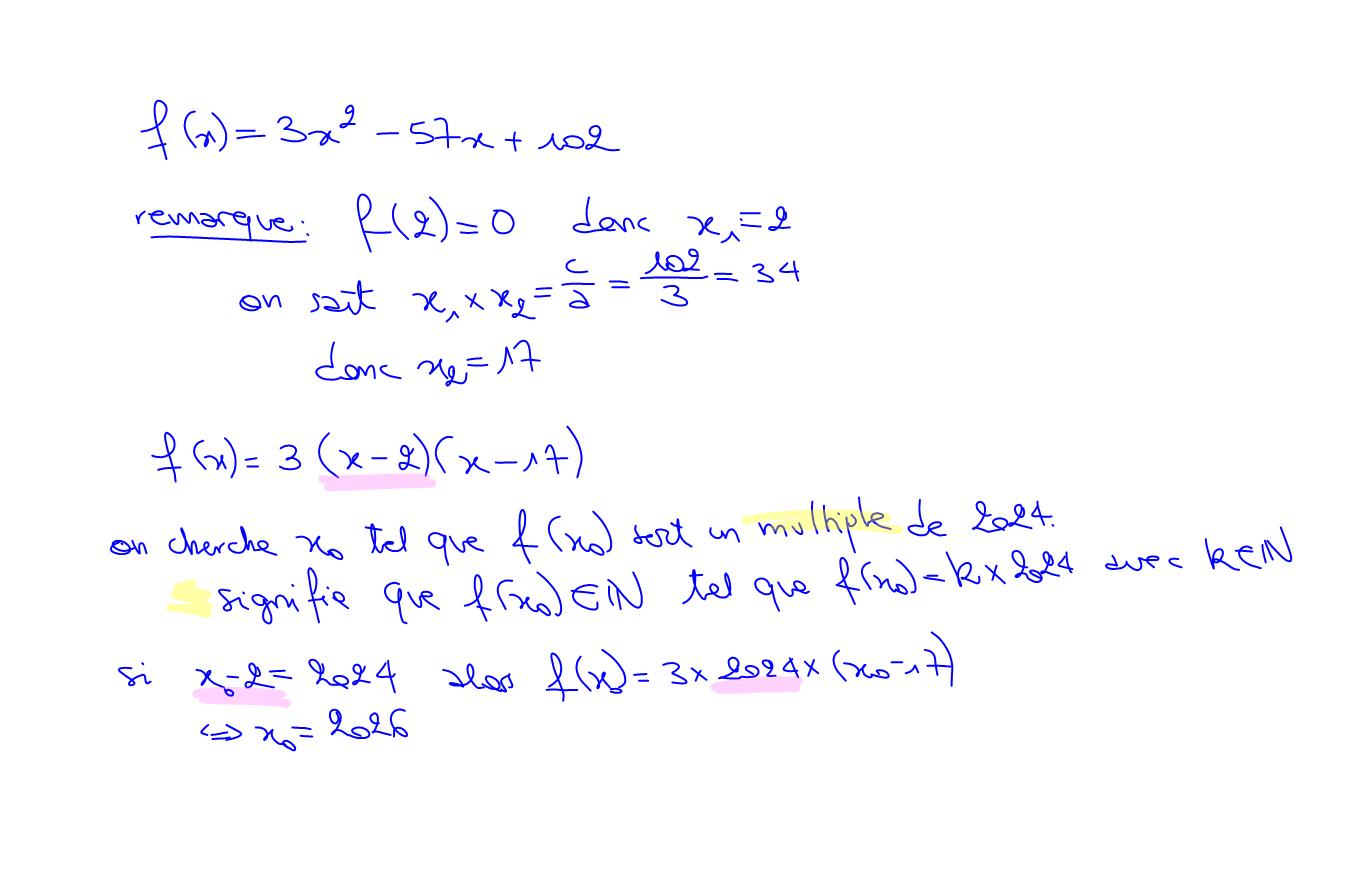 f(x) = 3x² - 57x + 102
remarque : f(2) = 0 donc x₁ = 2
on sait x₁ × x₂ = c/a = 102/3 = 34
donc x₂ = 17
f(x) = 3 (x - 2)(x - 17)
on cherche x₀ tel que f(x₀) soit un multiple de 2024.
signifie que f(x₀) ∈ ℕ tel que f(x₀) = k × 2024 avec k ∈ ℕ
si x₀ - 2 = 2024 alors f(x₀) = 3 × 2024 × (x₀ - 17)
⇔ x₀ = 2026